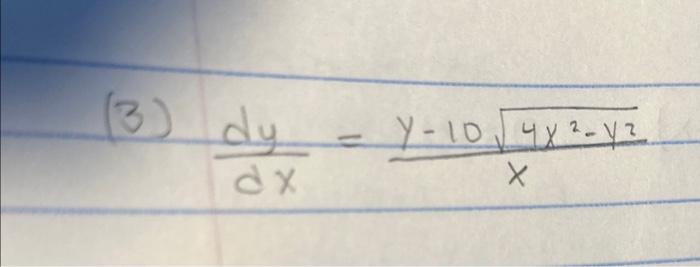 (3) dy/dx = y-10√(4x²-y²)/x